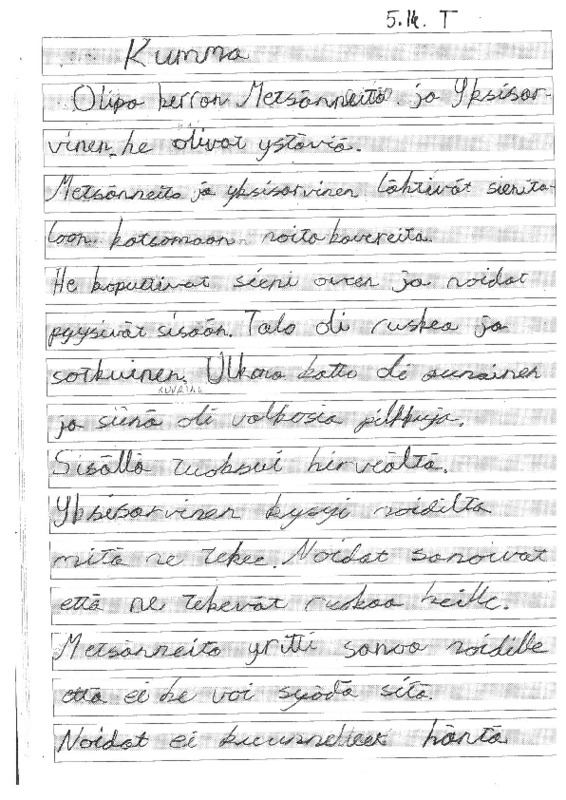 5.lk. T
Kumma
Olipa kerran Metsänneito ja Yksisar-
vinen, he olivat ystäviä.
Metsänneito ja yksisarvinen lähtivät sienita-
loon katsomaan noita kavereita.
He koputtivat sieni oven ja noidat
pyysivät sisään. Talo oli ruskea ja
sotkuinen. Ulkona katto oli punainen
ja siinä oli valkosia pilkkuja.
Sisällä tuoksui hirveältä.
Yksisarvinen kysyi noidilta
mitä ne tekee. Noidat sanoivat
että ne tekevät ruokaa heille.
Metsänneito yritti sanoa noidille
että ei he voi syödä sitä.
Noidat ei kuunnelleet häntä